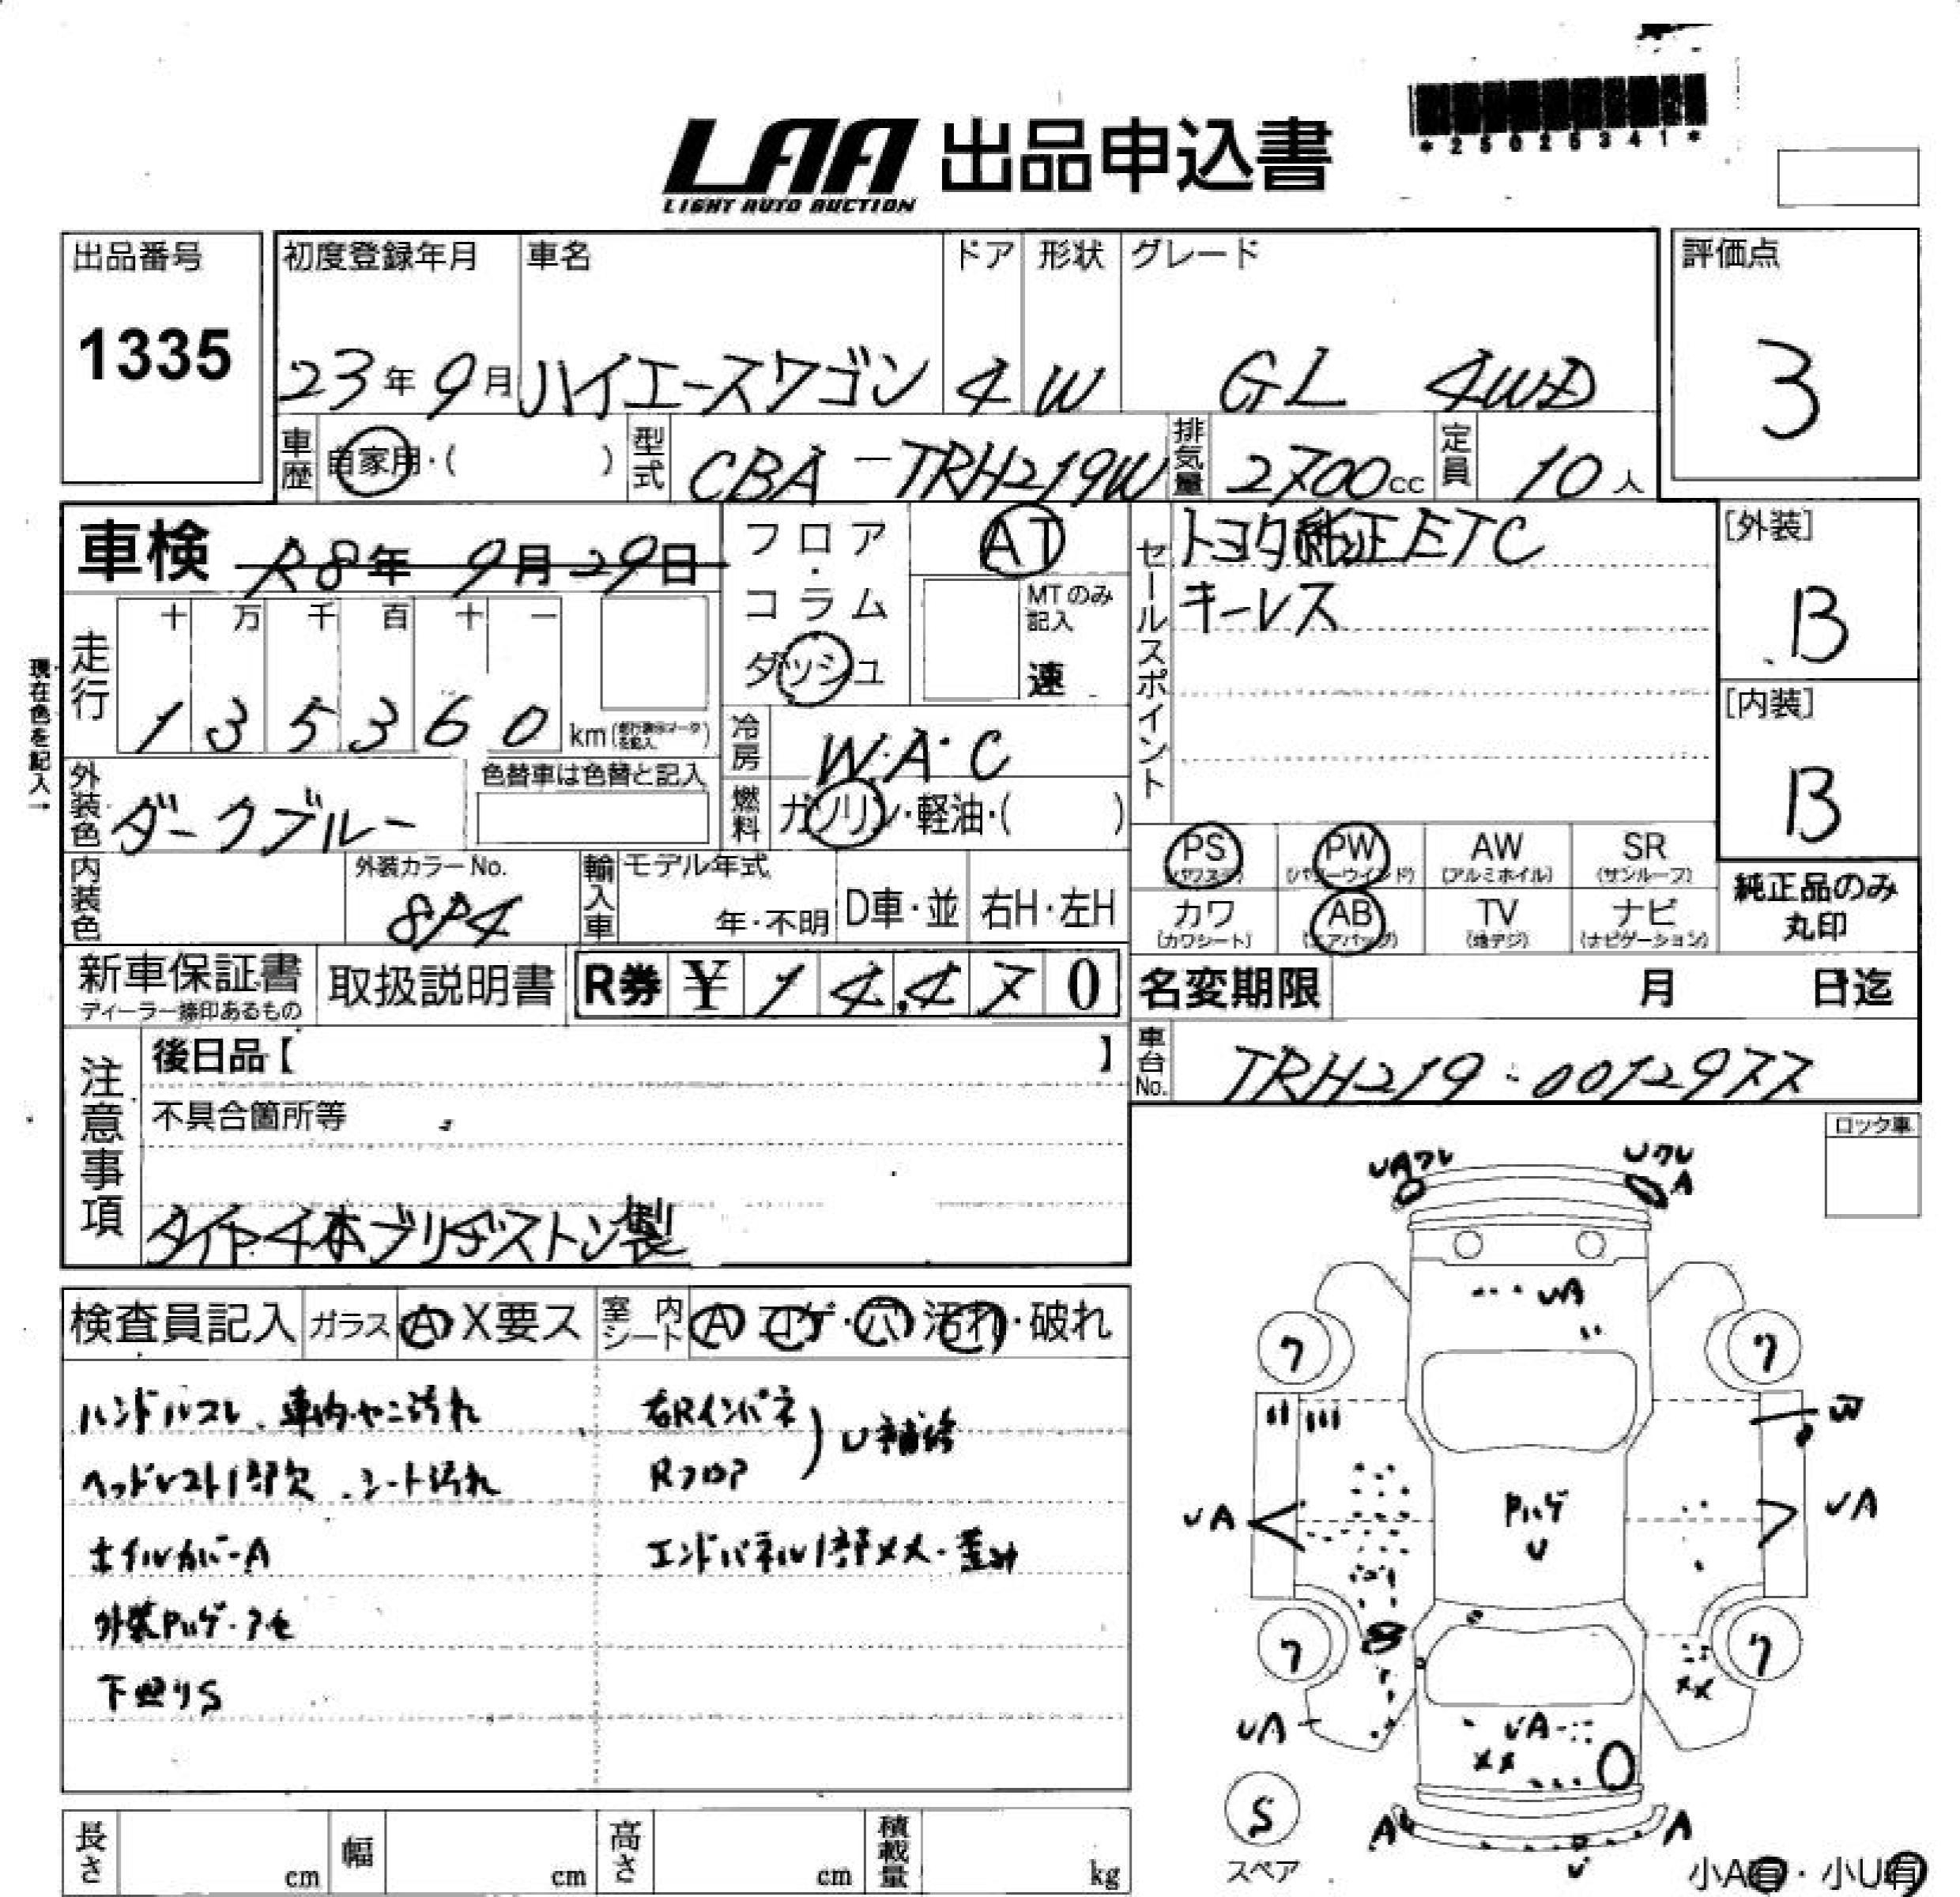 *25025341*
LAA 出品申込書
LIGHT AUTO AUCTION
出品番号
1335
初度登録年月
23年9月
車名
ハイエースワゴン
ドア
4
形状
W
グレード
GL 4WD
評価点
3
車歴
自家用・( )
型式
CBA-TRH219W
排気量
2700cc
定員
10人
車検 R8年 9月29日
走行
十 万 千 百 十 一
1 3 5 3 6 0 km
現在色を記入→
外装色
ダークブルー
色替車は色替と記入
内装色
外装カラーNo.
8P4
フロア
・
コラム
ダッシュ
AT
MTのみ記入
速
冷房
W・A・C
燃料
ガソリン・軽油・( )
輸入車
モデル年式
年・不明
D車・並
右H・左H
セールスポイント
トヨタ純正ETC
キーレス
[外装]
B
[内装]
B
PS (パワステ)
PW (パワーウインド)
AW (アルミホイル)
SR (サンルーフ)
カワ (カワシート)
AB (エアバッグ)
TV (地デジ)
ナビ (ナビゲーション)
純正品のみ
丸印
新車保証書
ディーラー捺印あるもの
取扱説明書
R券 ¥ 1 4,4 7 0
名変期限 月 日迄
車台No.
TRH219-0012977
注意事項
後日品【 】
不具合箇所等
タイヤ4本ブリヂストン製
ロック車
検査員記入
ガラス
A X要ス
室内シート
A コゲ・穴 汚れ・破れ
ハンドルスレ、車内ヤニ汚れ
ヘッドレスト1部欠、シート汚れ
ホイルカバーA
外装Pハゲ・アセ
下廻りS
右Rインパネ
Rフロア
U補修
エンドパネル1部メメ・歪み
UAワレ
Uワレ
A
UA
ワ
ワ
W
UA
UA
Pハゲ
U
ワ
ワ
XX
UA
UA
XX
S
スペア
A
A
U
小A有・小U有
長さ cm
幅 cm
高さ cm
積載量 kg